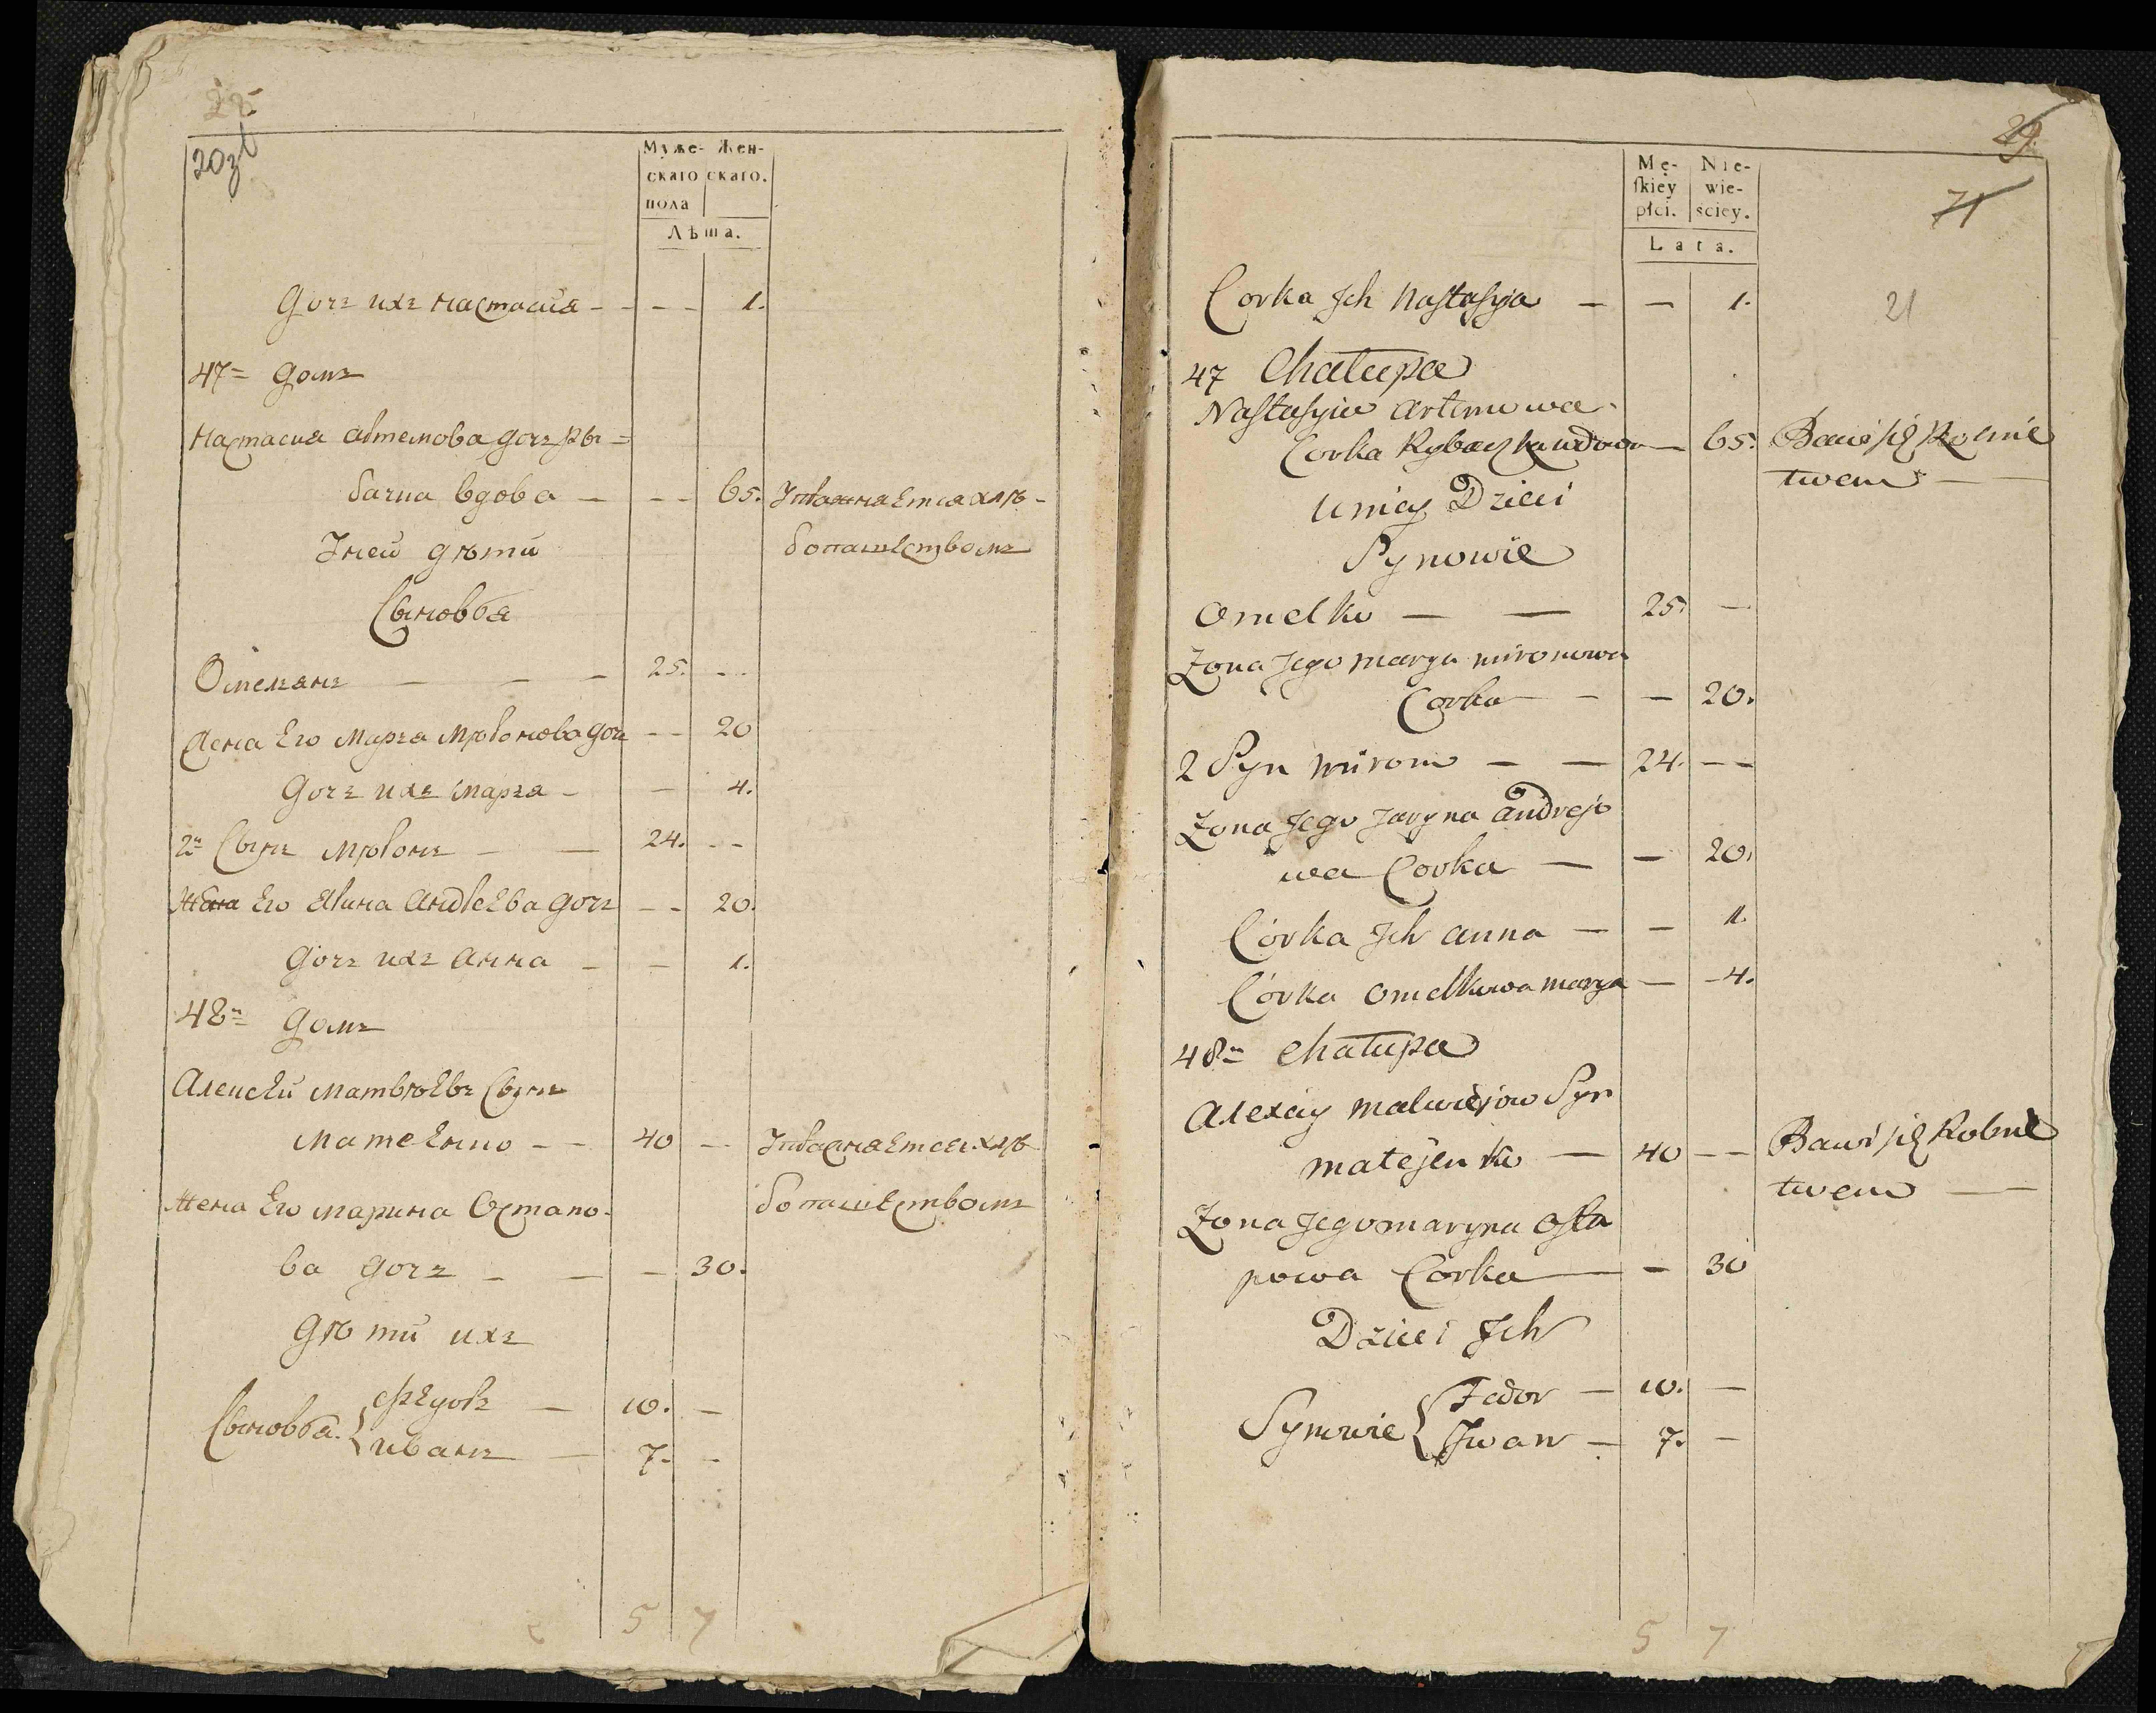 28
20зв
Муже- Жен-
скаго скаго.
пола
Лѣта.
Дочъ ихъ Настасиа - - - - 1.
47= домъ
Настасиа Автемова дочъ ры=
бачиа вдова - - - 65. Упражняется хлѣ-
Унеи дѣти
бопашествомъ
Сыновья
Омелянъ - - - 25. - -
Жена Его Маря Миронова доч - - 20
Дочъ ихъ Маря - - 4.
2й Сынъ Миронъ - - 24. - -
Жена Его Арина Андреева дочъ - - 20.
Дочъ ихъ Анна - - 1.
48= домъ
Алексеи Матвѣевъ Сынъ
Матеенко - - 40 - Упражняется хлѣ
Жена Его Марина Остапо-
бопашествомъ
ва дочъ - - - 30.
Дѣти ихъ
Сыновья { Федоръ - 10. -
Иванъ - 7. -
5 7
29.
Mę- Nie-
skiey wie-
płci. sciey.
Lata.
71
Corka Jch Nastasyia - - 1.
21
47 Chałupa
Nastasyia Artemowa
Corka Rybaczka wdowa - 65. Bawi się Rolnic
twem -
U niey Dzieci
Synowie
Omelko - - 25. -
Zona Jego Marya Mironowa
Corka - - 20.
2 Syn Miron - - 24. - -
Zona Jego Jaryna Andrejo
wa Corka - - 20.
Córka Jch Anna - - 1.
Córka Omelkowa Marya - - 4.
48= Chałupa
Alexiey Matwiejow Syn
Matejenko - 40 - - Bawi się Rolnic
twem -
Zona Jego Maryna Osta
powa Corka - - 30
Dzieci Jch
Synowie { Fedor - 10. -
Jwan - 7. -
5 7